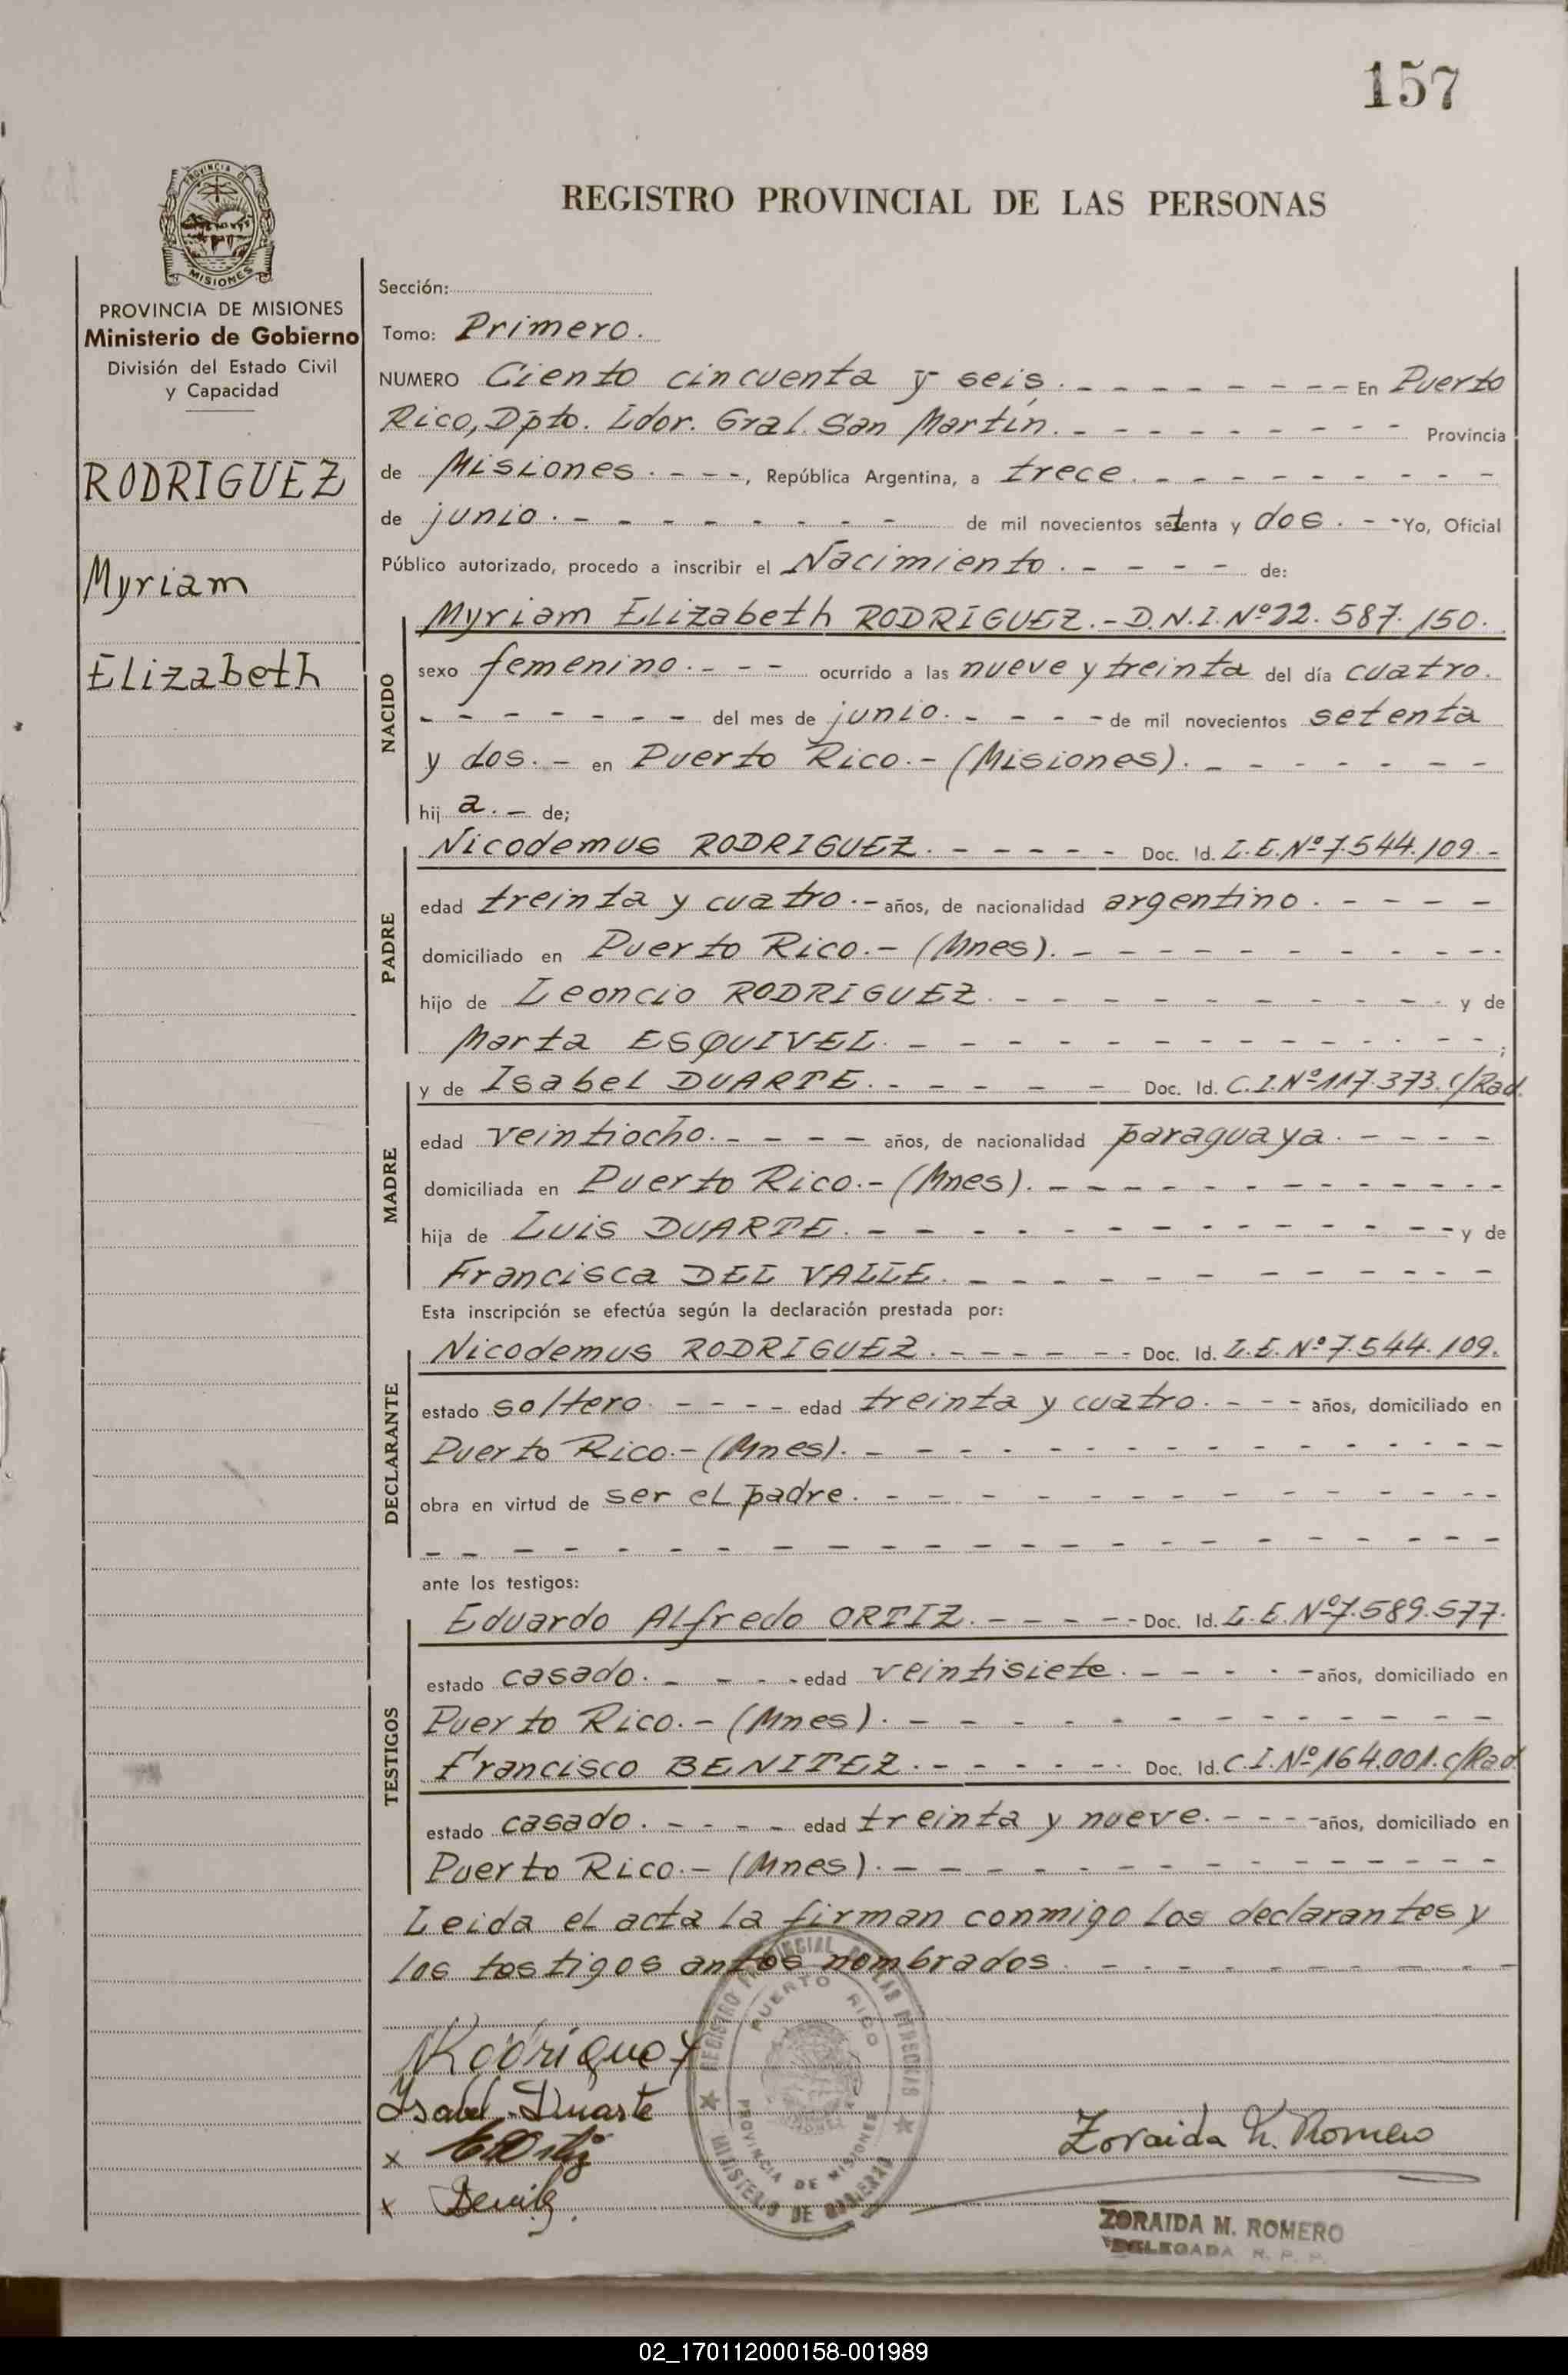 157
PROVINCIA DE
MISIONES
REGISTRO PROVINCIAL DE LAS PERSONAS
PROVINCIA DE MISIONES
Ministerio de Gobierno
División del Estado Civil
y Capacidad
RODRIGUEZ
Myriam
Elizabeth
Sección:
Tomo: Primero.
NUMERO Ciento cincuenta y seis. - - - - - - - - En Puerto
Rico, Dpto. Ldor. Gral. San Martín. - - - - - - - - - Provincia
de Misiones. - - -, República Argentina, a trece. - - - - - - - - -
de junio. - - - - - - - - de mil novecientos setenta y dos. - - Yo, Oficial
Público autorizado, procedo a inscribir el Nacimiento. - - - - de:
NACIDO
Myriam Elizabeth RODRIGUEZ. - D.N.I. Nº 22.587.150.
sexo femenino. - - - ocurrido a las nueve y treinta del día cuatro.
- - - - - - - del mes de junio. - - - - de mil novecientos setenta
y dos. - en Puerto Rico. - (Misiones). - - - - - - -
hij a. - de;
PADRE
Nicodemus RODRIGUEZ. - - - - - Doc. Id. L.E. Nº 7.544.109. -
edad treinta y cuatro. - años, de nacionalidad argentino. - - - -
domiciliado en Puerto Rico. - (Mnes). - - - - - - - - - -
hijo de Leoncio RODRIGUEZ. - - - - - - - - - - y de
Marta ESQUIVEL. - - - - - - - - - - - - ;
MADRE
y de Isabel DUARTE. - - - - - Doc. Id. C.I. Nº 117.373. C/Rad.
edad veintiocho. - - - - años, de nacionalidad paraguaya. - - - -
domiciliada en Puerto Rico. - (Mnes). - - - - - - - - - - -
hija de Luis DUARTE. - - - - - - - - - - - - y de
Francisca DEL VALLE. - - - - - - - - - - -
Esta inscripción se efectúa según la declaración prestada por:
DECLARANTE
Nicodemus RODRIGUEZ. - - - - - - Doc. Id. L.E. Nº 7.544.109.
estado soltero. - - - - edad treinta y cuatro. - - - años, domiciliado en
Puerto Rico. - (Mnes). - - - - - - - - - - - - - -
obra en virtud de ser el padre. - - - - - - - - - - - - -
- - - - - - - - - - - - - - - - - - - - -
ante los testigos:
TESTIGOS
Eduardo Alfredo ORTIZ. - - - - - Doc. Id. L.E. Nº 7.589.577.
estado casado. - - - - edad veintisiete. - - - - - años, domiciliado en
Puerto Rico. - (Mnes). - - - - - - - - - - - -
Francisco BENITEZ. - - - - - - Doc. Id. C.I. Nº 164.001. C/Rad.
estado casado. - - - - edad treinta y nueve. - - - - años, domiciliado en
Puerto Rico. - (Mnes). - - - - - - - - - - - - -
Leida el acta la firman conmigo los declarantes y
los testigos antes nombrados. - - - - - - - - -
REGISTRO PROVINCIAL DE LAS PERSONAS
PUERTO RICO
PROVINCIA DE MISIONES
MINISTERIO DE GOBIERNO
NRodriguez
Isabel Duarte
x EAOrtiz
x
Zoraida M. Romero
ZORAIDA M. ROMERO
DELEGADA R. P. P.
02_170112000158-001989